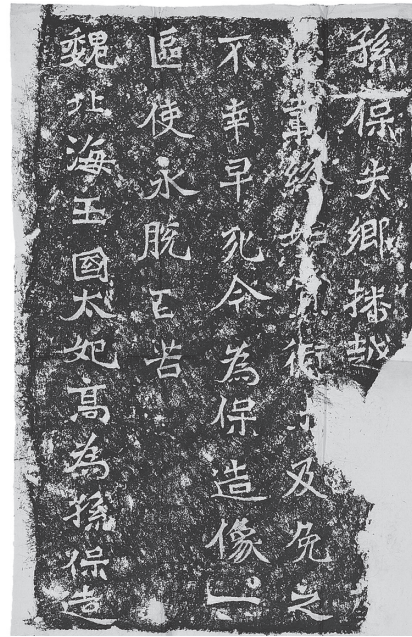 孫保失鄉播越
銜未及免之
不幸早死今為保造像一
區使永脫百苦
魏北海王國太妃高為孫保造